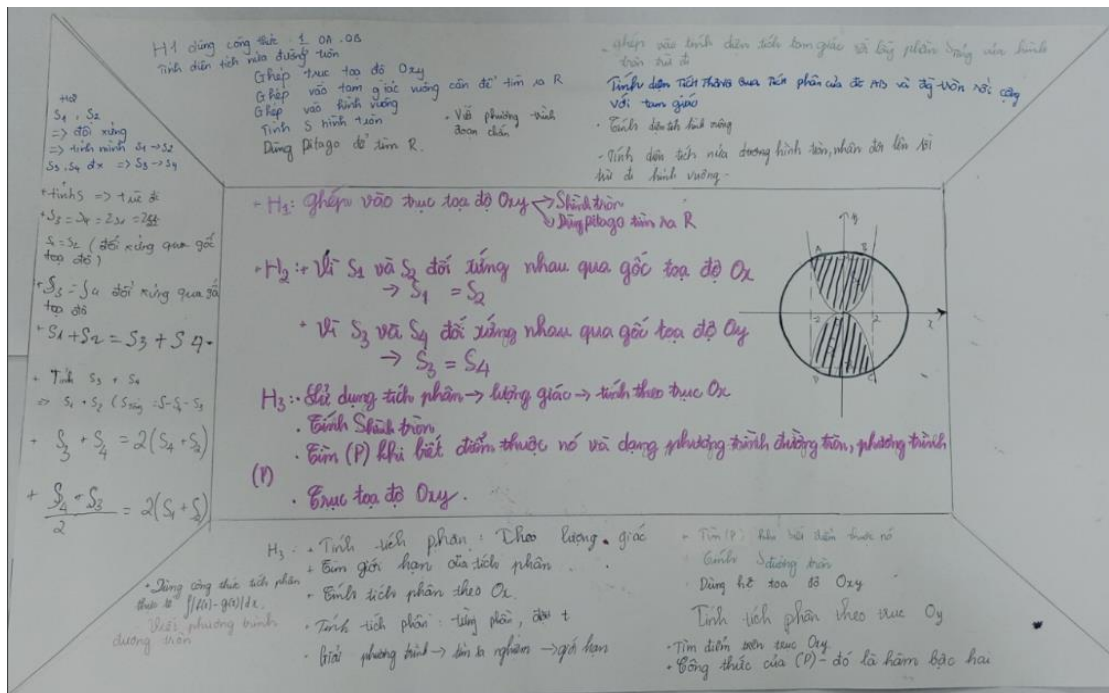 H1 dùng công thức 1/2 OA.OB
Tính diện tích nửa đường tròn
Ghép trục toạ độ Oxy
Ghép vào tam giác vuông cân để tìm ra R
Ghép vào hình vuông
Tính S hình tròn
Dùng Pitago để tìm R.
. Viết phương trình
đoạn chắn
. ghép vào tính diện tích tam giác và lấy phần của hình
tròn trừ đi
Tính diện tích thông qua tích phân của đt AB và đg tròn rồi cộng
với tam giác
. Tính diện tích hình vuông
- Tính diện tích nửa đường hình tròn, nhân đôi lên rồi
trừ đi hình vuông -
S1, S2
=> đối xứng
=> tính mình S1 -> S2
S3, S4 đx => S3 -> S4
+ tính S => trừ đi
+ S3 = S4 = 2S1 = 2S2
S1 = S2 (đối xứng qua gốc
toạ độ)
+ S3 = S4 đối xứng qua gố
toạ độ
+ S1 + S2 = S3 + S4.
+ Tính S3 + S4
=> S1 + S2 (= S - S4 - S3
+ S3 + S4 = 2(S4 + S2)
+ (S4 + S3)/2 = 2(S1 + S2)
- H1: Ghép vào trục toạ độ Oxy -> S hình tròn
-> Dùng pitago tìm ra R
+ H2: + Vì S1 và S2 đối xứng nhau qua gốc toạ độ Ox
-> S1 = S2
+ Vì S3 và S4 đối xứng nhau qua gốc toạ độ Oy
-> S3 = S4
H3: . Sử dụng tích phân -> lượng giác -> tính theo trục Ox
. Tính S hình tròn
. Tìm (P) khi biết điểm thuộc nó và dạng phương trình đường tròn, phương trình
(P)
. Trục toạ độ Oxy.
y
A B
-2 2 x
D C
H3: + Tính tích phân: Theo lượng giác
+ Tìm giới hạn của tích phân
+ Tính tích phân theo Ox.
. Tính tích phân: từng phần, đặt t
. Giải phương trình -> tìm ra nghiệm -> giới hạn
. Dùng công thức tích phân
∫|f(x) - g(x)|dx.
Viết phương trình
đường tròn
- Tìm (P) khi biết điểm thuộc nó
- Tính S đường tròn
Dùng hệ toạ độ Oxy
Tính tích phân theo trục Oy
. Tìm điểm trên trục Oxy.
. Công thức của (P) - đó là hàm bậc hai